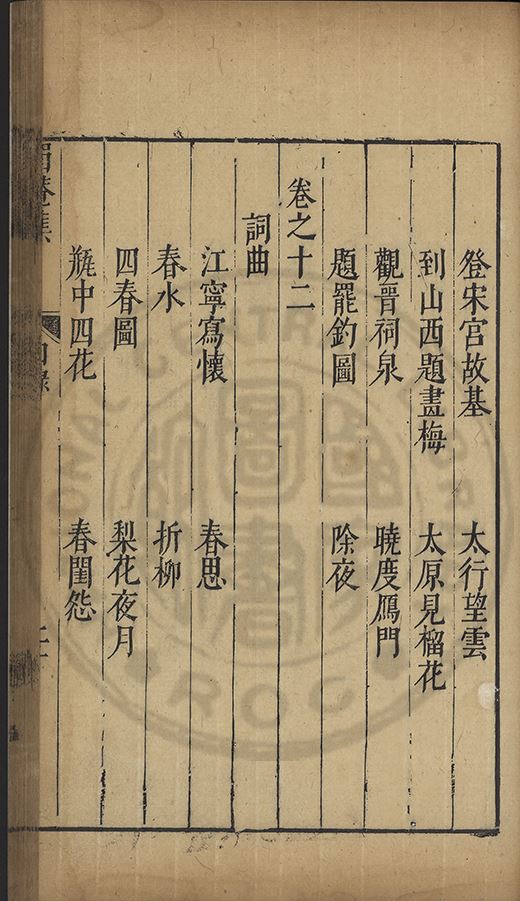 登宋宮故基　太行望雲
到山西題畫梅　太原見榴花
觀晉祠泉　曉度鴈門
題罷釣圖　除夜
卷之十二
詞曲
江寧寫懷　春思
春水　折柳
四春圖　梨花夜月
瓶中四花　春閨怨
目錄